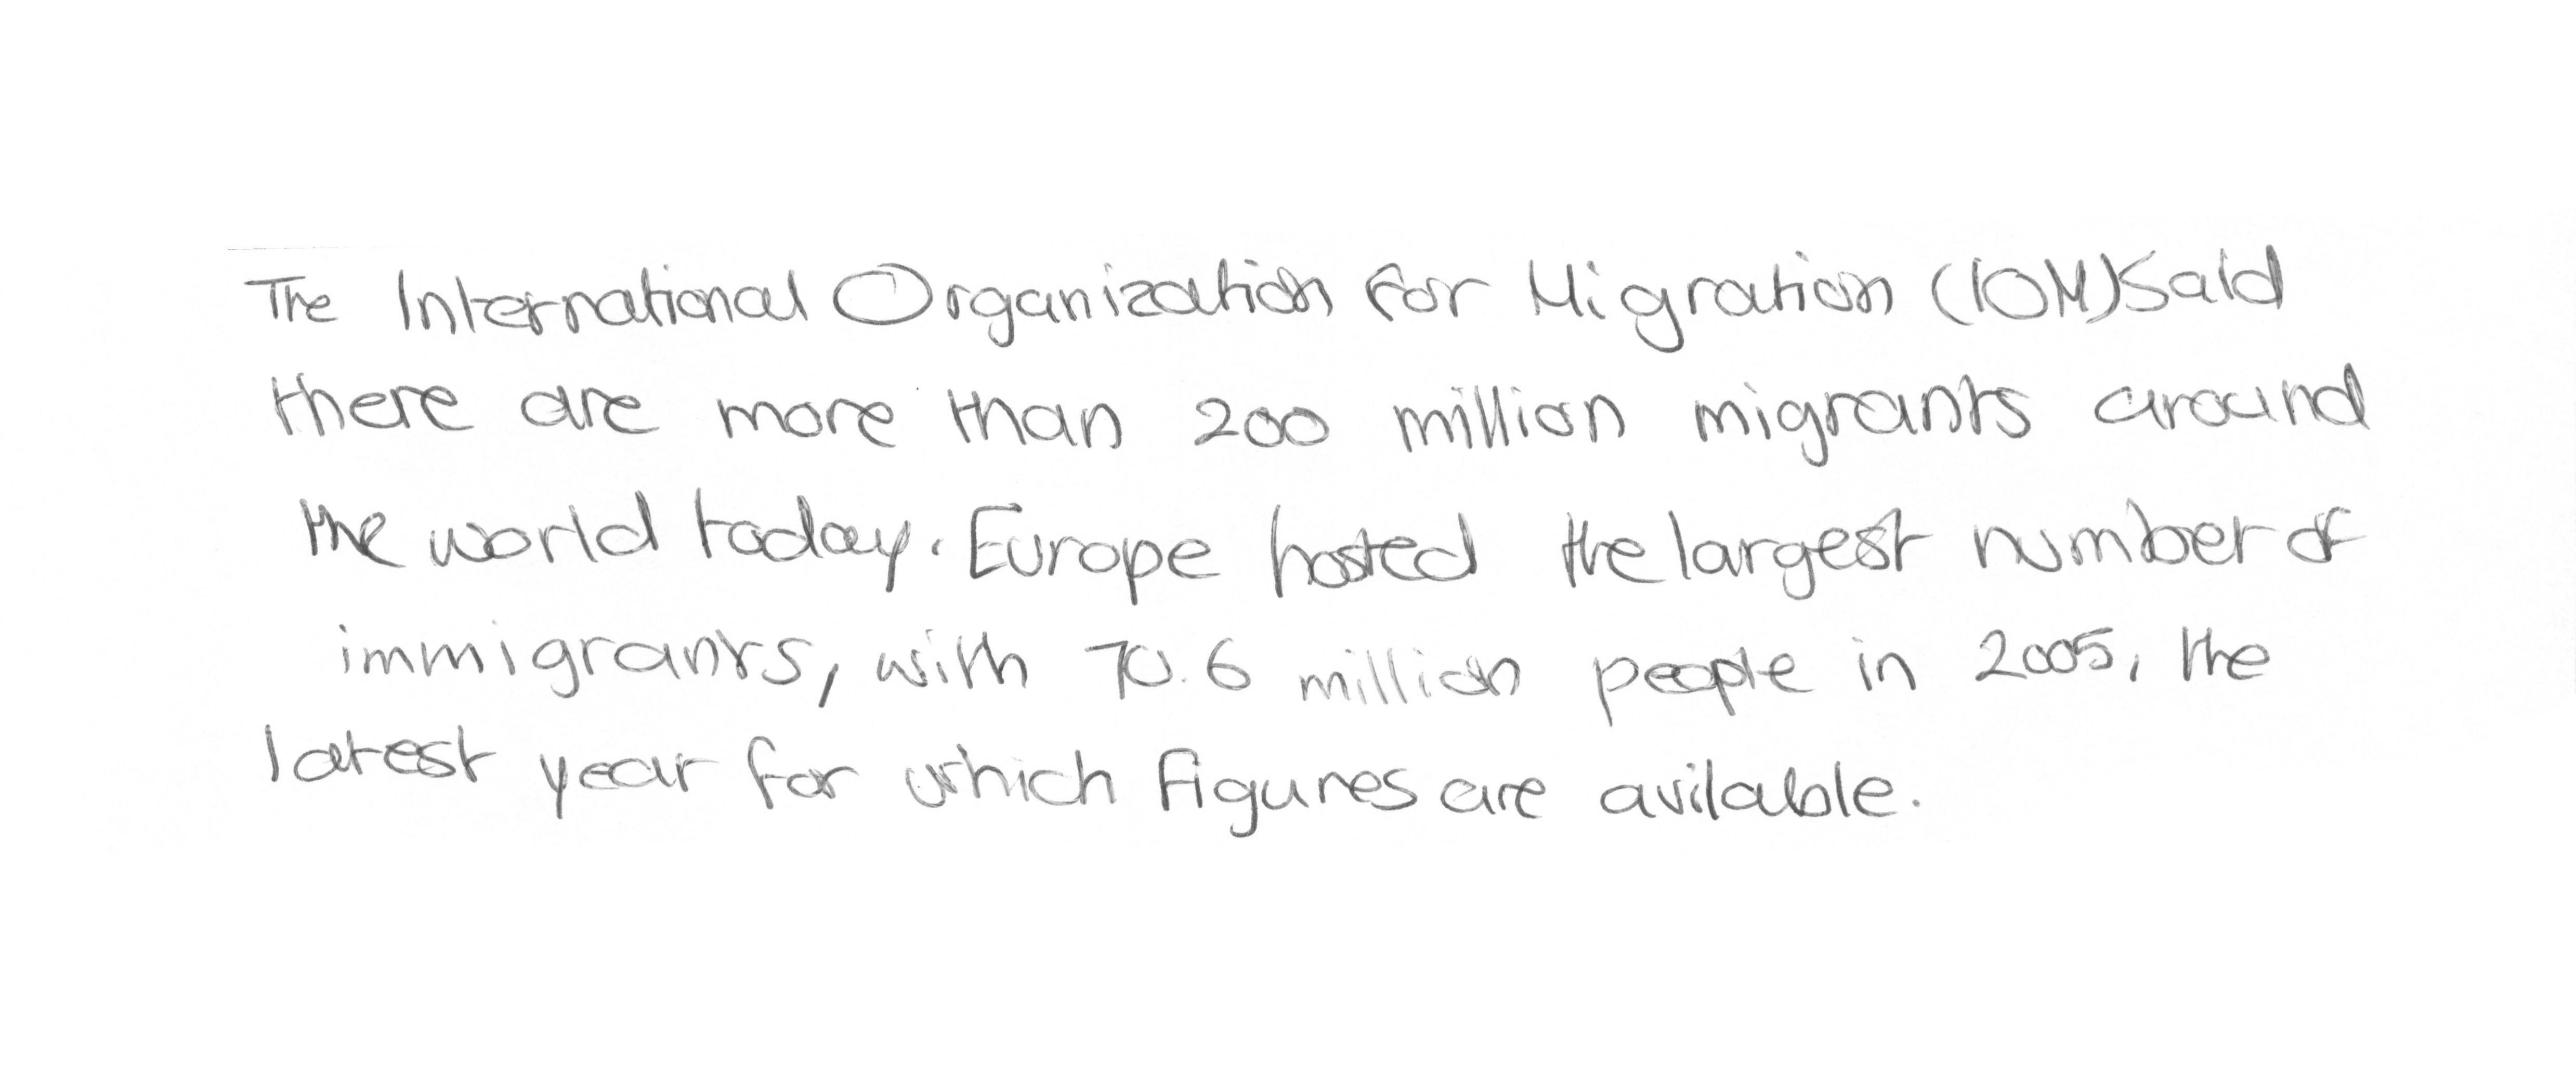 The International Organization for Migration (IOM) said
there are more than 200 million migrants around
the world today. Europe hosted the largest number of
immigrants, with 70.6 million people in 2005, the
latest year for which figures are avilable.